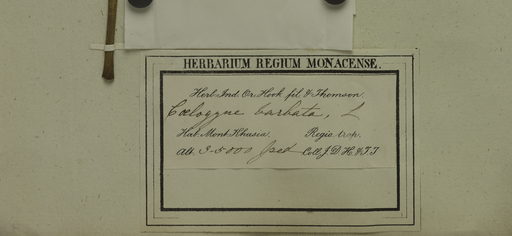 HERBARIUM REGIUM MONACENSE.
Herb. Ind. Or. Hook. fil. & Thomson.
Coelogyne barbata, L
Hab. Mont. Khasia. Regio trop.
Alt. 3-5000 ped. Coll. J. D. H. & T. T.